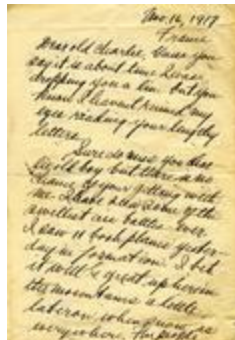 Nov. 16, 1917
France
Dear old Charlie, Guess you
say it is about time I was
dropping you a line but you
know I haven't ruined my
eyes reading your lengthy
letters.
Sure do miss you dear
old boy but there is no
chance of your getting with
me. I have seen some of the
swellest air battles ever
I saw 11 boch planes yester-
day in formation. I bet
it will be great up here in
the mountains a little
later on when snow is
everywhere. The people